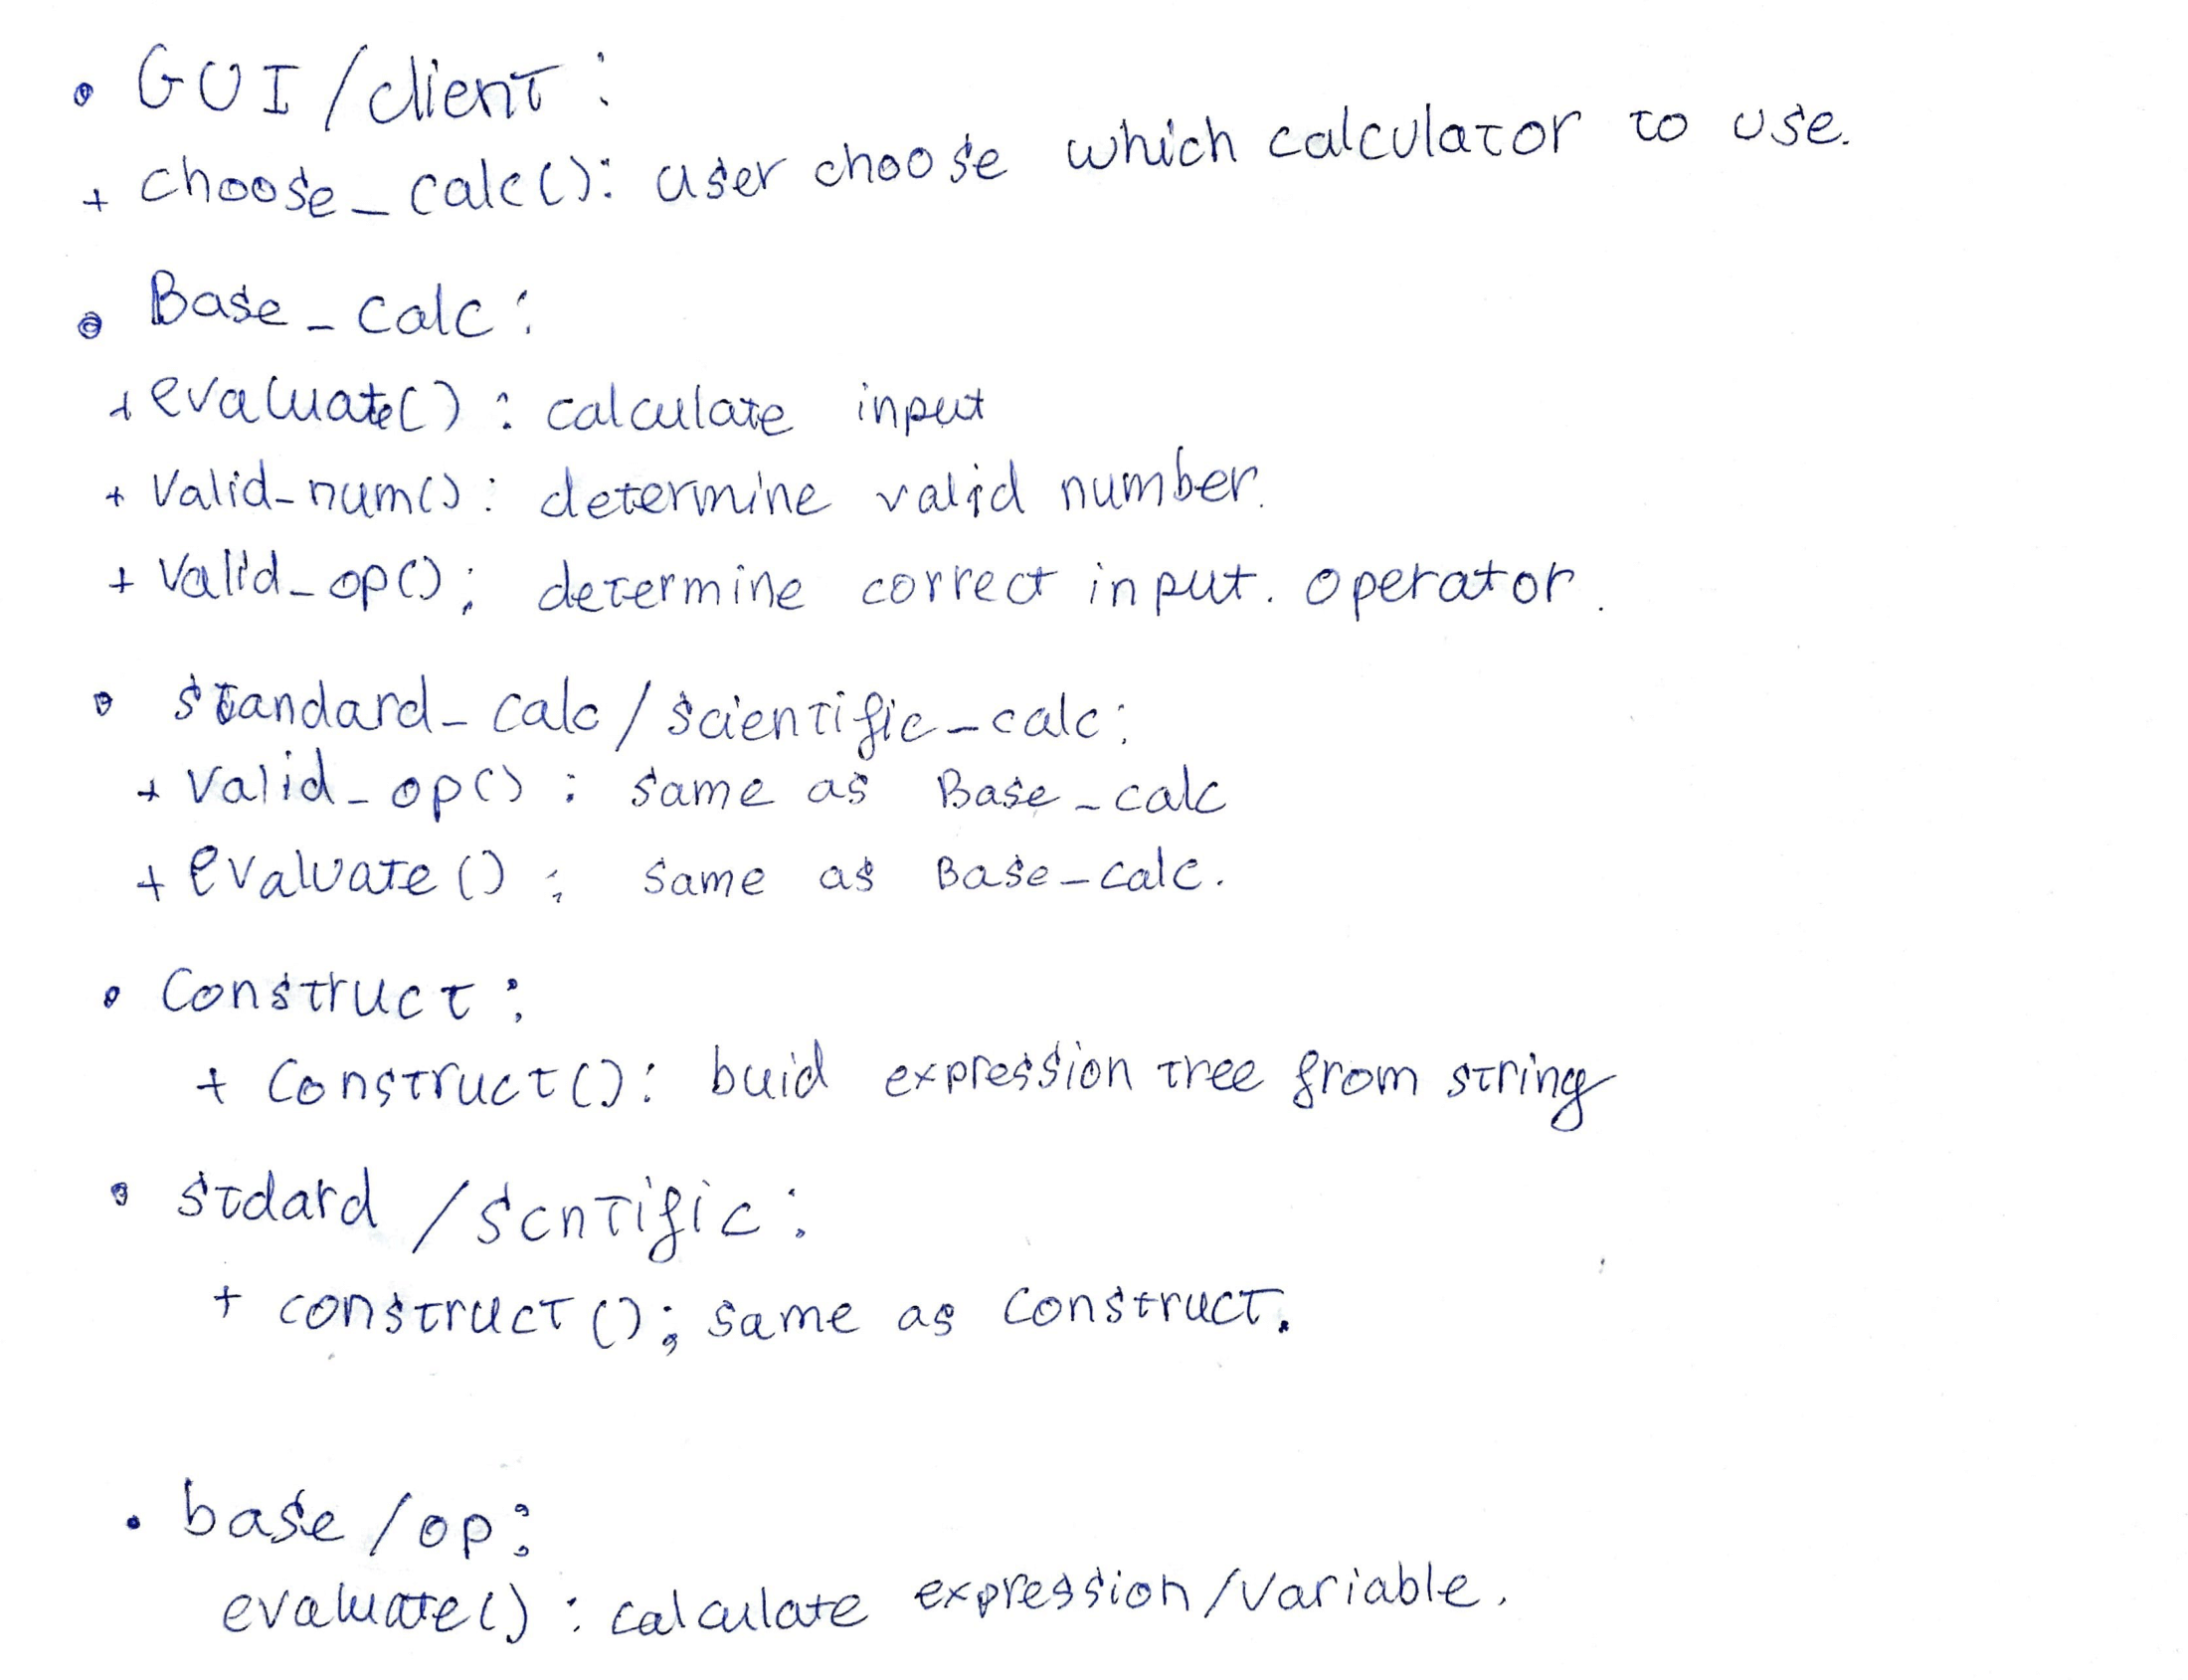 • GUI/client:
+ choose_calc(): user choose which calculator to use.
• Base_calc:
+ evaluate() : calculate input
+ Valid_num(): determine valid number.
+ Valid_op(): determine correct input. operator.
• standard_calc/scientific_calc:
+ Valid_op() : same as Base_calc
+ evaluate() : same as Base_calc.
• Construct:
+ Construct(): buid expression tree from string
• stdard/scntific:
+ construct(): same as construct.
• base/op:
evaluate() : calculate expression/variable.